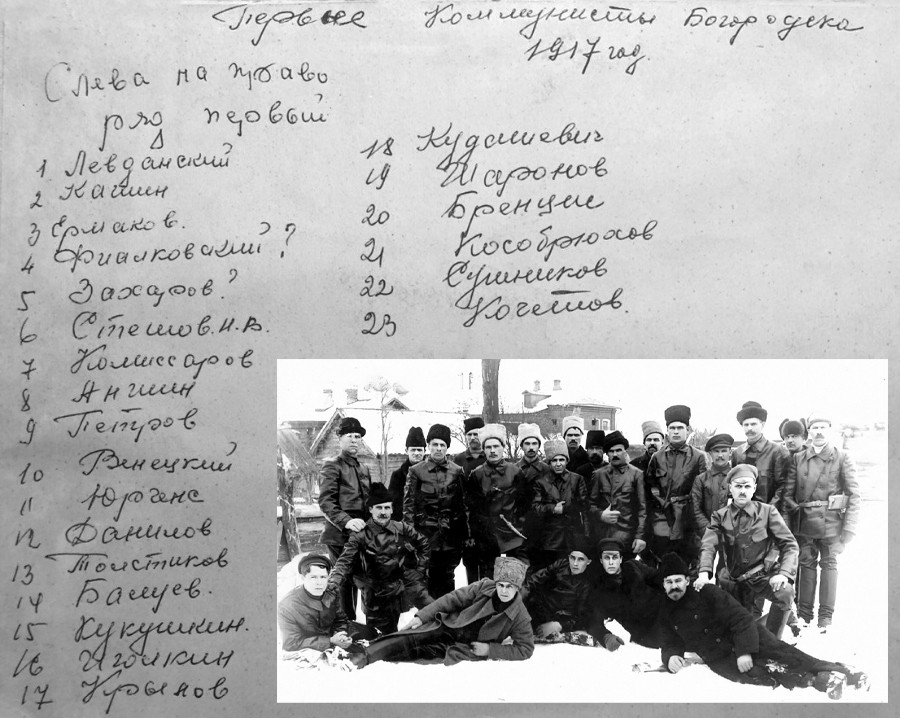 Первые Коммунисты Богородска
1917 год.
Слева на право
ряд первый
1 Левданский
2 Кашин
3 Ермаков.
4 Фиалковский?
5 Захаров?
6 Стешов. И.В.
7 Комиссаров
8 Аншин
9 Петров
10 Венецкий
11 Юргенс
12 Данилов
13 Толстиков
14 Балуев.
15 Кукушкин.
16 Иголкин
17 Крынов
18 Кудашевич
19 Шаронов
20
21 Кособрюхов
22 Сушников
23 Кочетов.